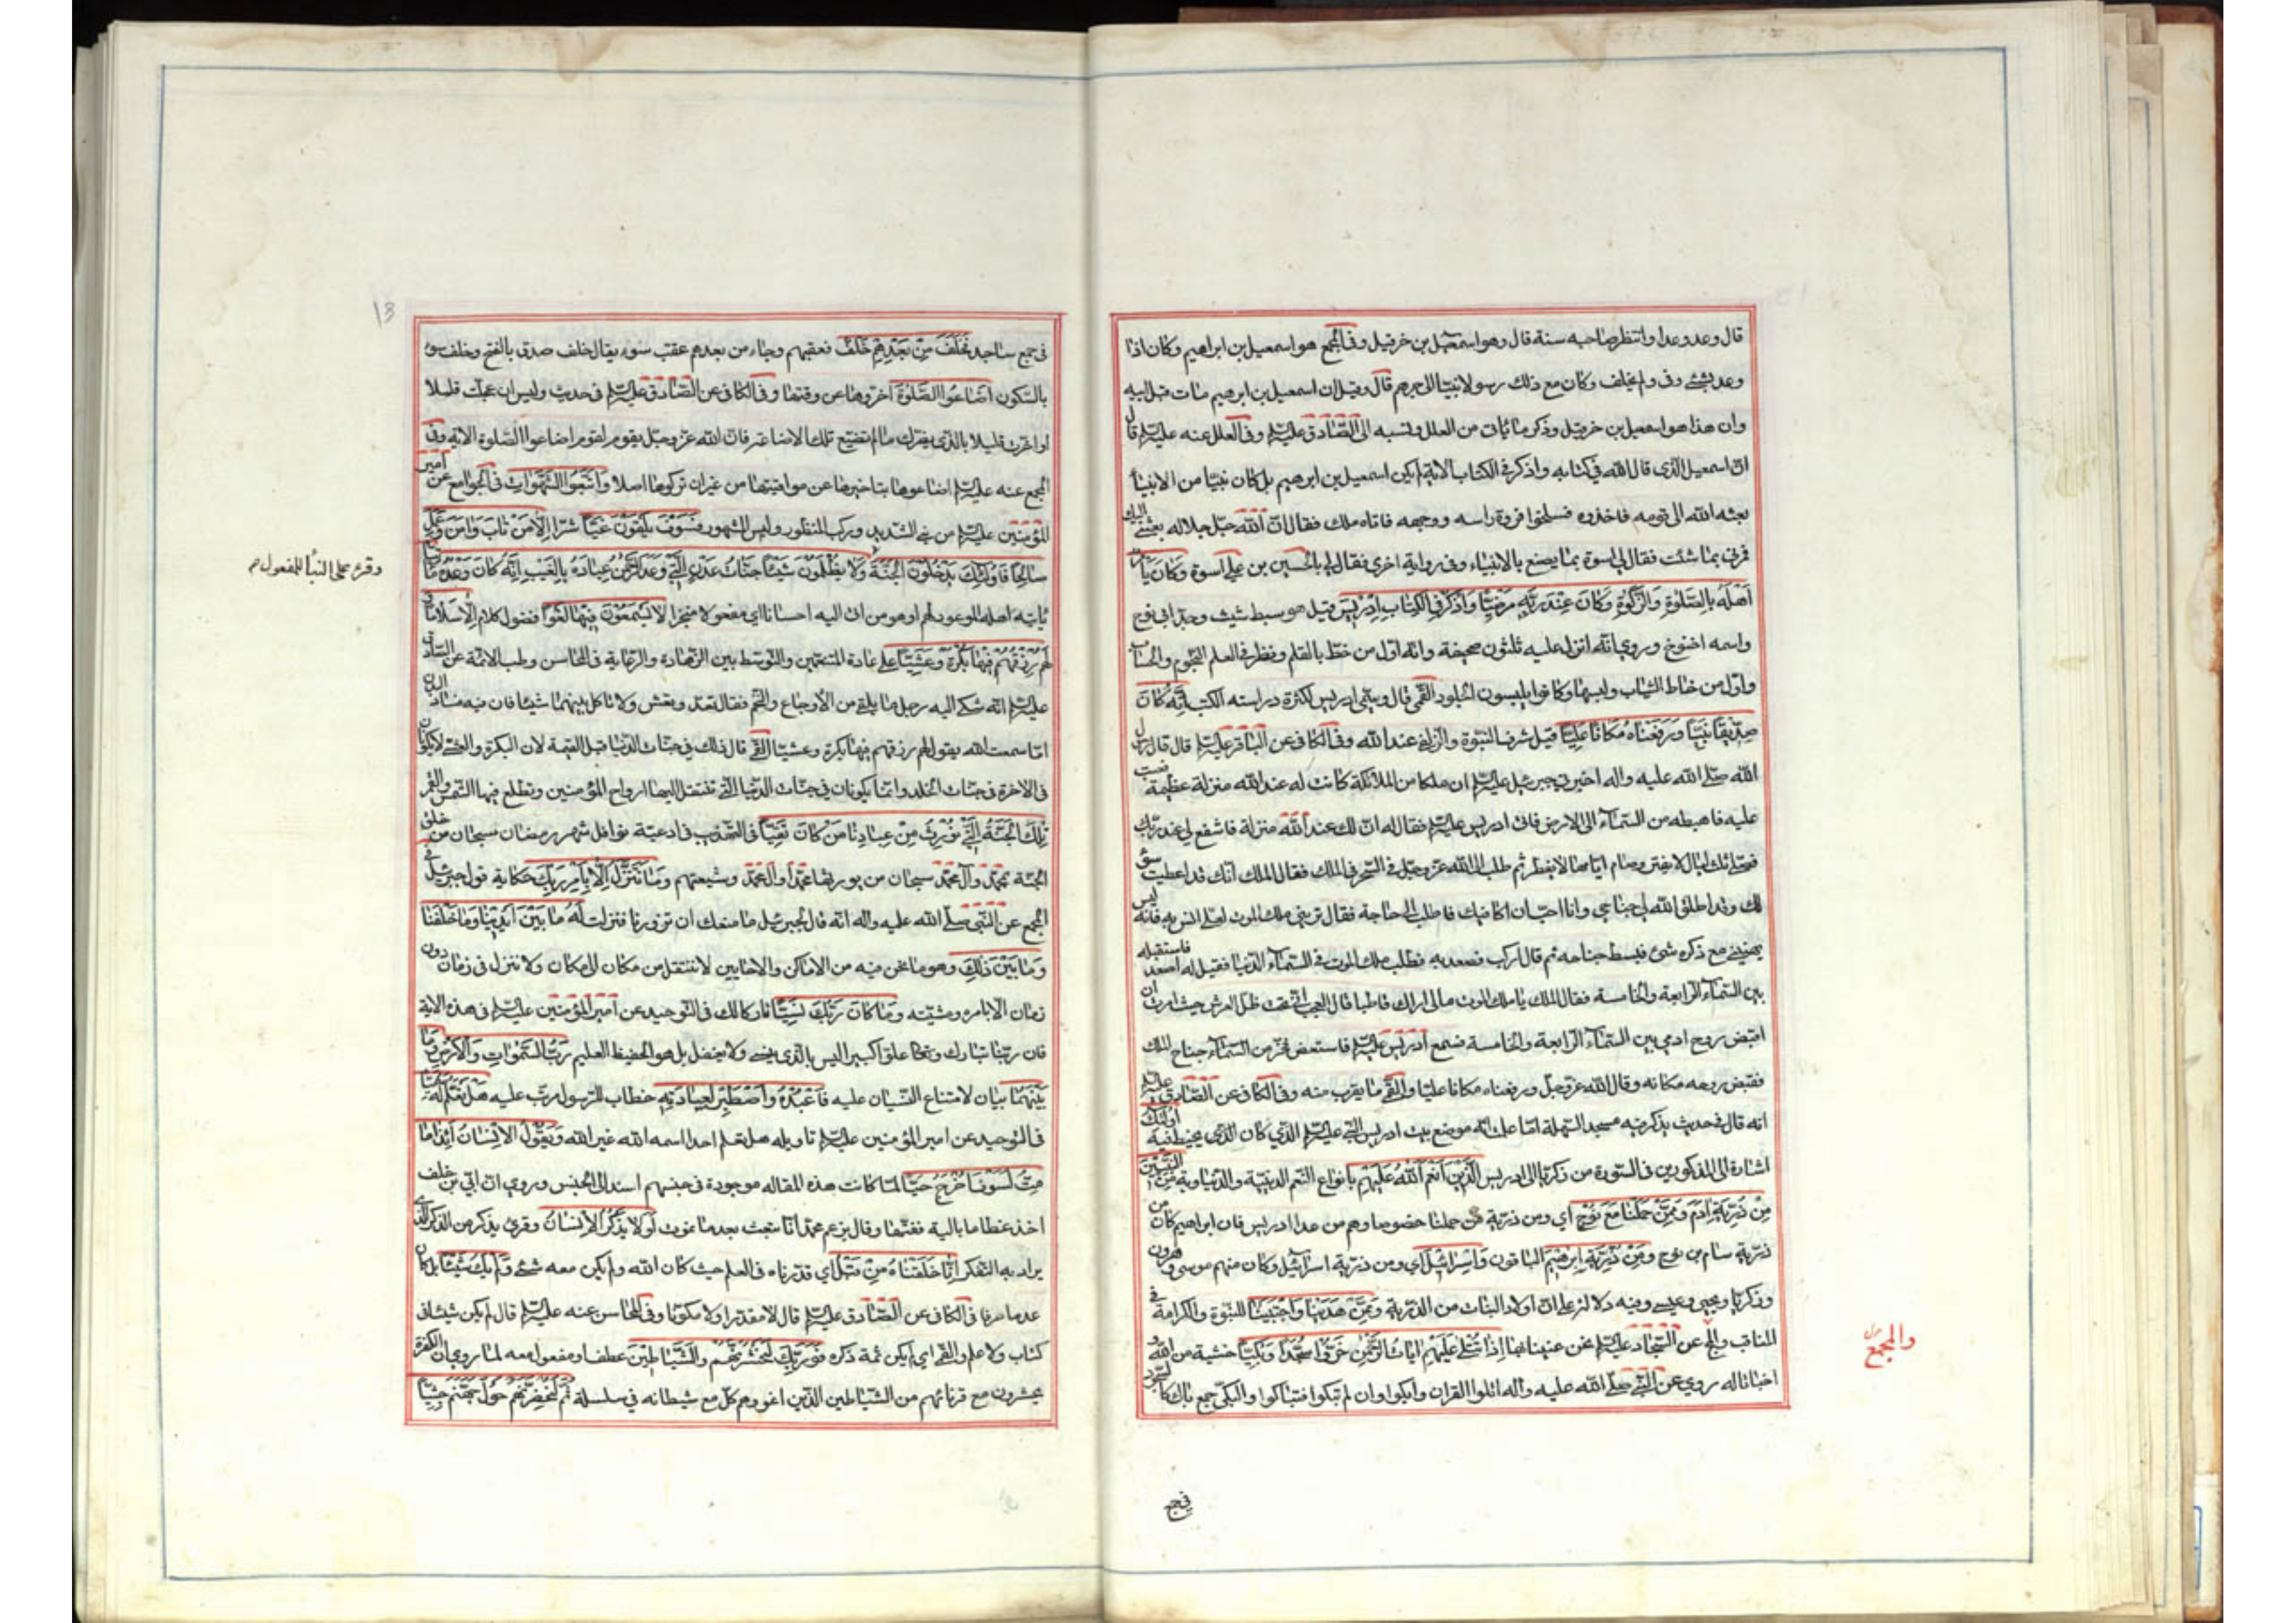 قال وعد وعدا وانتظر صاحبه سنة قال وهو اسمعيل بن خرقيل وفى المجمع هو اسمعيل بن ابراهيم وكان اذا
وعد بشئ وفى ولم يخلف وكان مع ذلك رسولا نبيا الى جرهم قال وقيل ان اسمعيل بن ابرهيم مات قبل ابيه
وان هذا هو اسمعيل بن خرقيل وذكر ما ياتى من العلل ونسبه الى الصادق عليه السلم وفى العلل عنه عليه السلم قال
ان اسمعيل الذى قال الله فى كتابه واذكر فى الكتاب الاية لم يكن اسمعيل بن ابرهيم بل كان نبيا من الانبيا
بعثه الله الى قومه فاخذوه فسلخوا فروة راسه ووجهه فاتاه ملك فقال ان الله جل جلاله بعثنى اليك
فمرنى بما شئت فقال لى اسوة بما يصنع بالانبياء وفى رواية اخرى فقال لى بالحسين بن على اسوة وكان يامر
اهله بالصلوة والزكوة وكان عند ربه مرضيا واذكر فى الكتاب ادريس قيل هو سبط شيث وجد ابى نوح
واسمه اخنوخ وروى انه انزل عليه ثلثون صحيفة وانه اول من خط بالقلم ونظر فى العلم النجوم والحساب
واول من خاط الثياب ولبسها وكانوا يلبسون الجلود القمى قال وسمى ادريس لكثرة دراسته الكتب انه كان
صديقا نبيا ورفعناه مكانا عليا قيل شرف النبوة والزلفى عند الله وفى الكافى عن الباقر عليه السلم قال قال رسول
الله صلى الله عليه واله اخبرنى جبرئيل عليه السلم ان ملكا من الملائكة كانت له عند الله منزلة عظيمة فعتب
عليه فاهبطه من السماء الى الارض فاتى ادريس عليه السلم فقال له ان لك عند الله منزلة فاشفع لى عند ربك
فصلى ثلث ليال لا يفتر وصام ايامها لا يفطر ثم طلب الى الله عز وجل فى السحر فى الملك فقال الملك انك قد اعطيت سؤلك
وقد اطلق الله لى جناحى وانا احب ان اكافيك فاطلب الى حاجة فقال ترينى ملك الموت لعلى انس به فانه ليس
يهنيئى مع ذكره شئ فبسط جناحه ثم قال اركب فصعد به فطلب ملك الموت فى السماء الدنيا فقيل له اصعد فاستقبله
بين السماء الرابعة والخامسة فقال الملك يا ملك الموت مالى اراك قاطبا قال العجب انى تحت ظل العرش حيث امرت ان
اقبض روح ادمى بين السماء الرابعة والخامسة فسمع ادريس عليه السلم فامتعض فخر من السماء جناح الملك
فقبض روحه مكانه وقال الله عز وجل ورفعناه مكانا عليا والقمى ما يقرب منه وفى الكافى عن الصادق عليه السلم
انه قال فى حديث يذكر فيه مسجد السهلة اما علمت انه موضع بيت ادريس النبى عليه السلم الذى كان الذى يخيط فيه اولئك
اشارة الى المذكورين فى السورة من زكريا الى ادريس الذين انعم الله عليهم بانواع النعم الدينية والدنياوية من النبيين
من ذرية ادم وممن حملنا مع نوح اى ومن ذرية من حملنا خصوصا وهم من عدا ادريس فان ابراهيم كان من
ذرية سام بن نوح ومن ذرية ابرهيم الباقون واسرائيل اى ومن ذرية اسرائيل وكان منهم موسى وهرون
وزكريا ويحيى وعيسى وفيه دلالة على ان اولاد البنات من الذرية وممن هدينا واجتبينا للنبوة والكرامة فى
المناقب والمجمع عن السجاد عليه السلم نحن عنينا بها اذا تتلى عليهم ايات الرحمن خروا سجدا وبكيا خشية من الله و
اخباتا له روى عن النبى صلى الله عليه واله اتلوا القران وابكوا وان لم تبكوا فتباكوا والبكى جمع باك كالسجود
والمجمع
فى جمع
13
فى جمع ساجد فخلف من بعدهم خلف فعقبهم وجاء من بعدهم عقب سوء يقال خلف صدق بالفتح وخلف سوء
بالسكون اضاعوا الصلوة اخروها عن وقتها وفى الكافى عن الصادق عليه السلم فى حديث وليس ان عجلت قليلا
او اخرت قليلا بالذى يضرك ما لم تضيع تلك الاضاعة فان الله عز وجل يقوم لقوم اضاعوا الصلوة الاية وفى
المجمع عنه عليه السلم اضاعوها بتاخيرها عن مواقيتها من غير ان تركوها اصلا واتبعوا الشهوات فى الجوامع عن امير
المؤمنين عليه السلم من بنى الشديد وركب المنظور ولبس المشهور فسوف يلقون غيا شرا الا من تاب وامن وعمل
صالحا فاولئك يدخلون الجنة ولا يظلمون شيئا جنات عدن التى وعد الرحمن عباده بالغيب انه كان وعده ماتيا
وقرئ على البناء للمفعول م
ياتيه اهله الموعود لهم او هو من اتى اليه احسانا اى مفعولا منجزا لا يسمعون فيها لغوا فضول كلام الا سلاما و
لهم رزقهم فيها بكرة وعشيا على عادة المتنعمين والتوسط بين الزهادة والرغابة فى المحاسن وطب الائمة عن الصادق
عليه السلم انه شكى اليه رجل ما يلقى من الاوجاع والتخم فقال تغد وتعش ولا تاكل بينهما شيئا فان فيه فساد البدن
اما سمعت الله يقول لهم رزقهم فيها بكرة وعشيا القمى قال ذلك فى جنات الدنيا قبل القيمة لان البكرة والعشى لا يكونان
فى الاخرة فى جنات الخلد وانما يكونان فى جنات الدنيا التى تنتقل اليها ارواح المؤمنين وتطلع فيها الشمس والقمر
تلك الجنة التى نورث من عبادنا من كان تقيا فى التهذيب فى ادعية نوافل شهر رمضان سبحان من خلق
الجنة لمحمد وآل محمد سبحان من يورثها محمدا وآل محمد وشيعتهم وما نتنزل الا بامر ربك حكاية قول جبرئيل فى
المجمع عن النبى صلى الله عليه واله انه قال لجبرئيل ما منعك ان تزورنا فنزلت له ما بين ايدينا وما خلفنا
وما بين ذلك وهو ما نحن فيه من الاماكن والاحايين لا ننتقل من مكان الى مكان ولا ننزل فى زمان دون
زمان الا بامره ومشيته وما كان ربك نسيا تاركا لك فى التوحيد عن امير المؤمنين عليه السلم فى هذه الاية
فان ربنا تبارك وتعالى علوا كبيرا ليس بالذى ينسى ولا يغفل بل هو الحفيظ العليم رب السموات والارض وما
بينهما بيان لامتناع النسيان عليه فاعبده واصطبر لعبادته خطاب للرسول مرتب عليه هل تعلم له سميا
فى التوحيد عن امير المؤمنين عليه السلم تاويله هل تعلم احدا اسمه الله غير الله ويقول الانسان ائذا ما
مت لسوف اخرج حيا لما كانت هذه المقاله موجودة فى جنسهم اسند الى الجنس وروى ان ابى بن خلف
اخذ عظاما بالية ففتها وقال يزعم محمد انا نبعث بعد ما نموت اولا يذكر الانسان وقرئ يذكر من الذكر الذى
يراد به التفكر انا خلقناه من قبل اى قدرناه فى العلم حيث كان الله ولم يكن معه شئ ولم يك شيئا بل كان
عدما صرفا فى الكافى عن الصادق عليه السلم قال لا مقدرا ولا مكونا وفى المحاسن عنه عليه السلم قال لم يكن شيئا فى
كتاب ولا علم والقمى اى لم يكن ثمة ذكره فوربك لنحشرنهم والشياطين عطف او مفعول معه لما روى ان الكفرة
يحشرون مع قرنائهم من الشياطين الذين اغووهم كل مع شيطانه فى سلسلة ثم لنحضرنهم حول جهنم جثيا